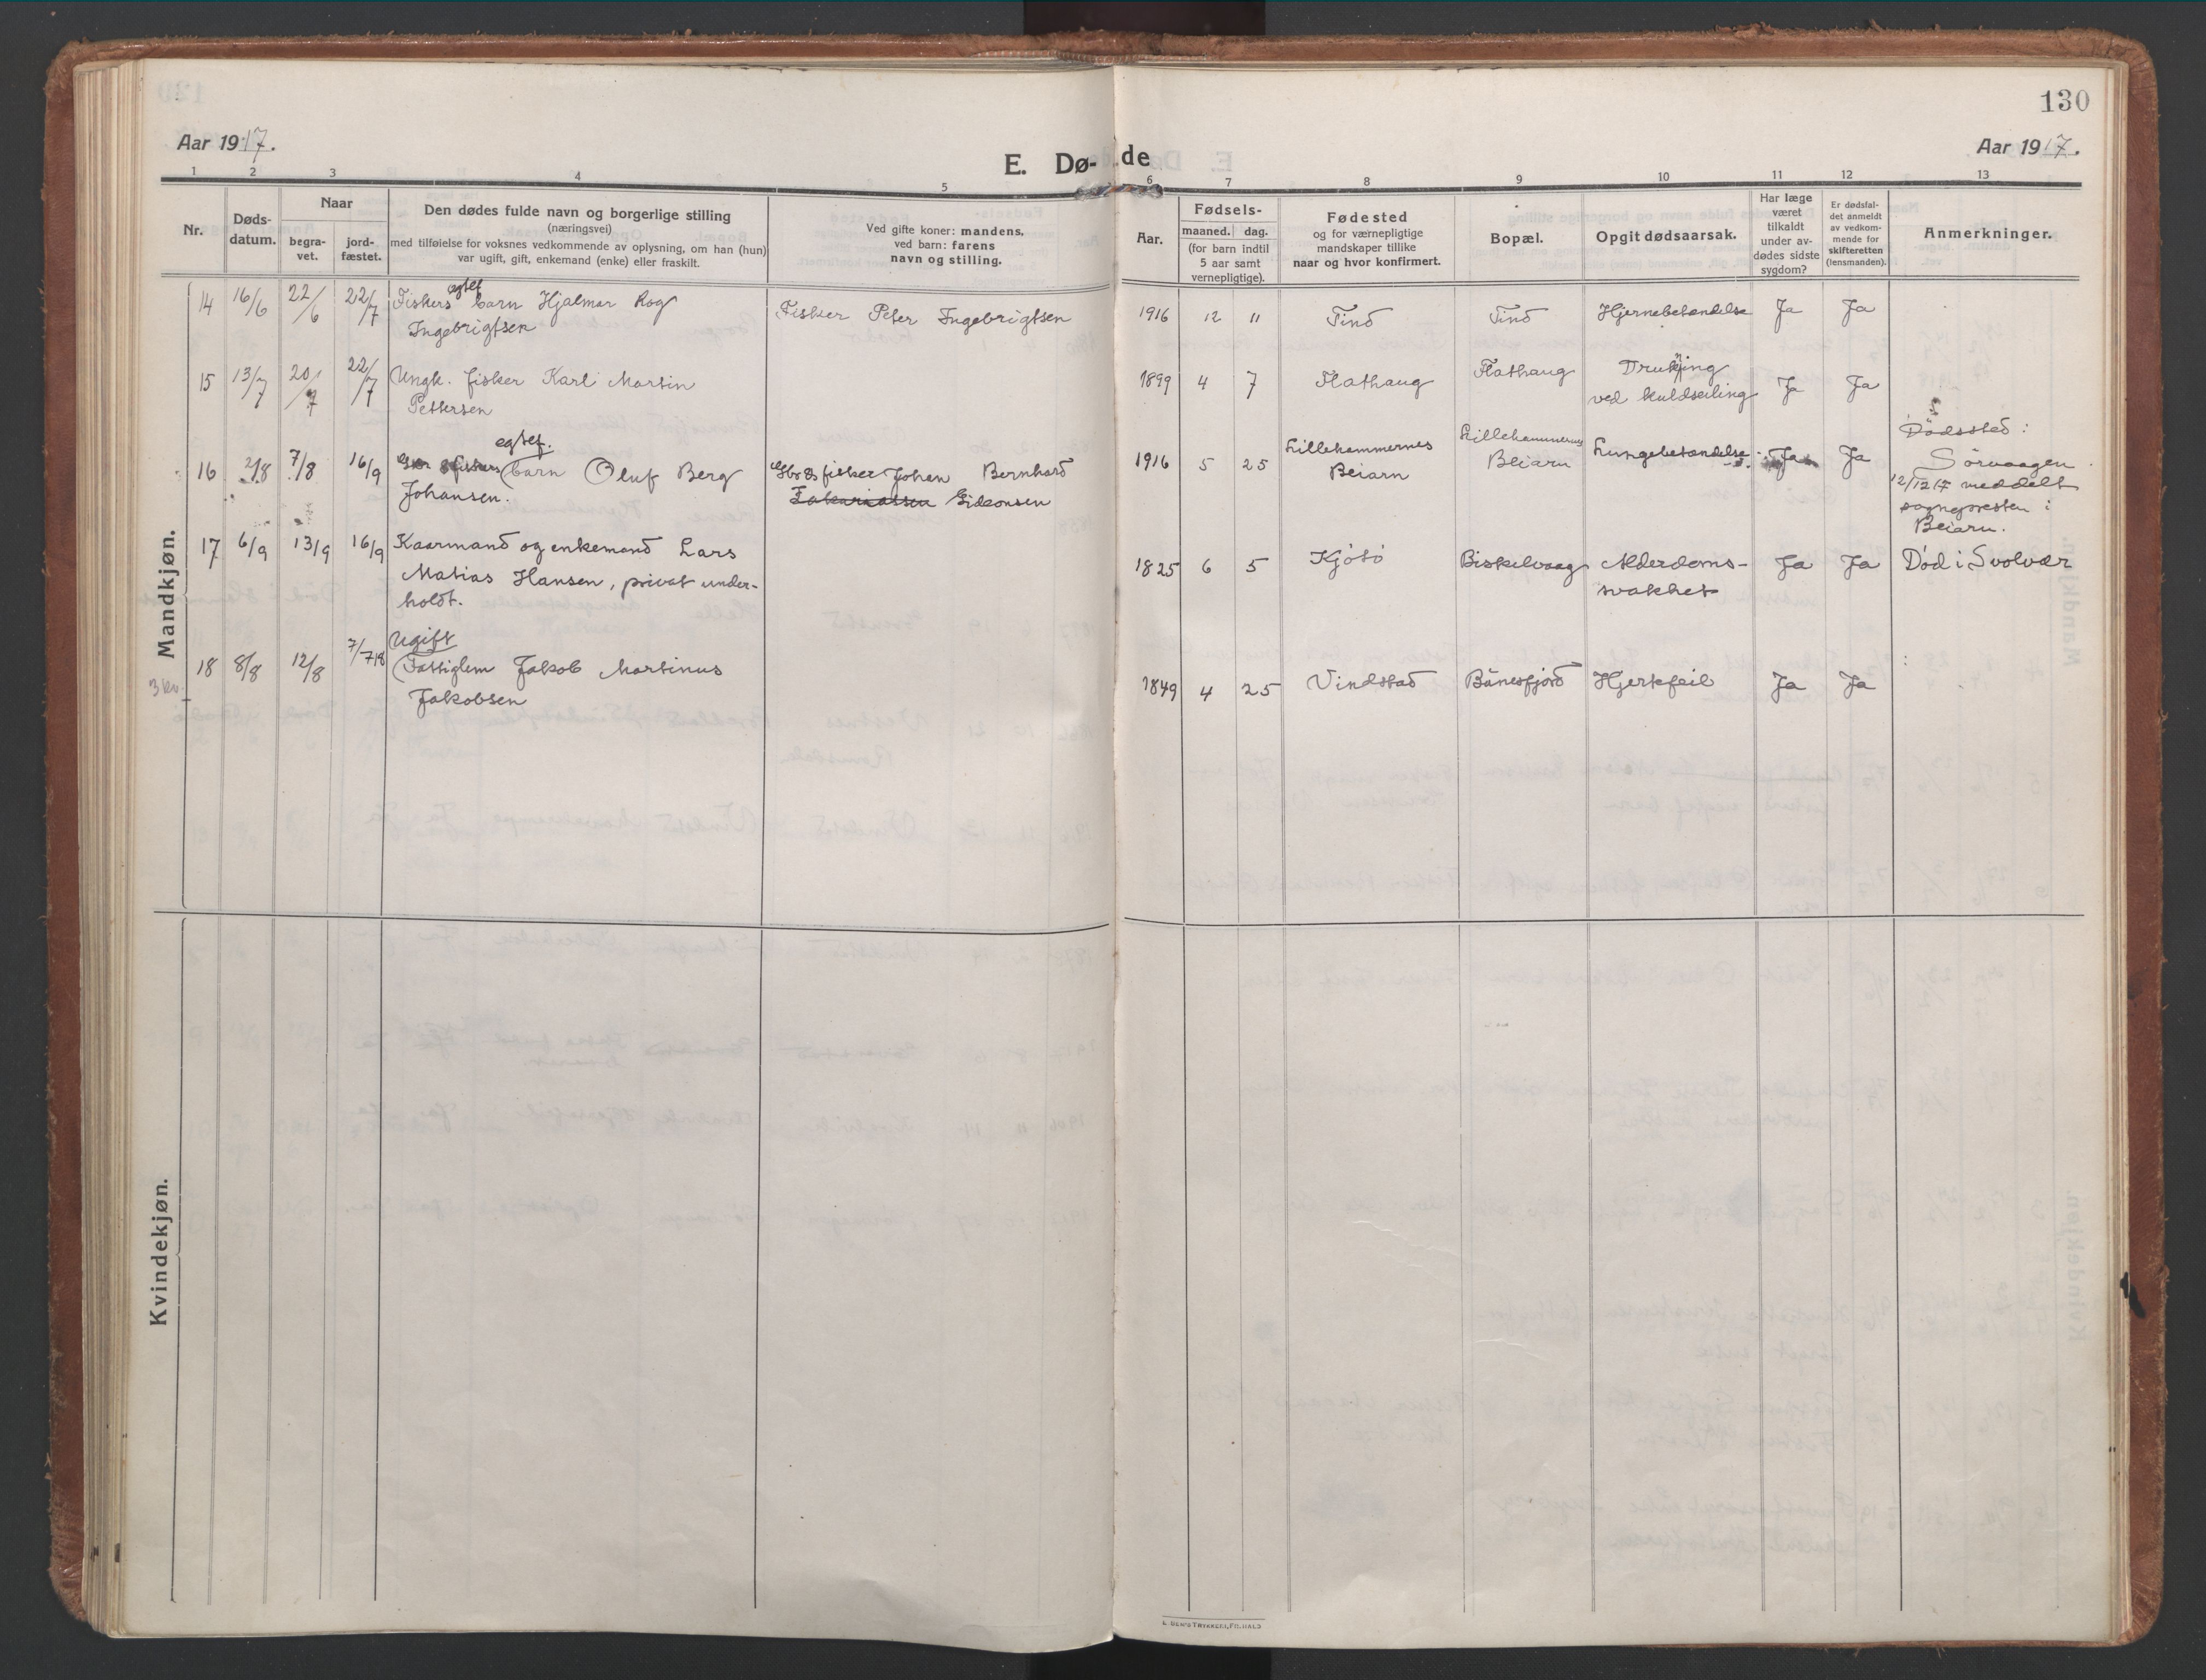 130
Aar 1917.
E. Dø-de
Aar 1917.
1 2 3 4 5 6 7 8 9 10 11 12 13
Nr.
Døds-
datum.
Naar
begra-
vet.
jord-
fæstet.
Den dødes fulde navn og borgerlige stilling
(næringsvei)
med tilføielse for voksnes vedkommende av oplysning, om han (hun)
var ugift, gift, enkemand (enke) eller fraskilt.
Ved gifte koner: mandens,
ved barn: farens
navn og stilling.
Aar.
Fødsels-
maaned. dag.
(for barn indtil
5 aar samt
vernepligtige).
Fødested
og for værnepligtige
mandskaper tillike
naar og hvor konfirmert.
Bopæl.
Opgit dødsaarsak.
Har læge
været
tilkaldt
under av-
dødes sidste
sygdom?
Er dødsfal-
det anmeldt
av vedkom-
mende for
skifteretten
(lensmanden).
Anmerkninger.
Mandkjøn.
egtef.
14 16/6 22/6 22/7 Fiskers barn Hjalmar Rog Fisker Peter Ingebrigtsen 1916 12 11 Tind Tind Hjernebetændelse Ja Ja
Ingebrigtsen
15 13/7 20/7 22/7 Ungk. fisker Karl Martin 1899 4 7 Flathaug Flathaug Drukning Ja Ja
Pettersen ved kuldseiling
egtef.
16 2/8 7/8 16/9 barn Oluf Berg Gbr & fisker Johan Bernhard 1916 5 25 Lillehammernes Lillehammernes Lungebetændelse Ja Ja Dødssted:
Johansen. Zakariassen Gideonsen Beiarn Beiarn Sörvaagen
12/12 17 meddelt
sognepresten i
Beiarn.
17 6/9 13/9 16/9 Kaarmand og enkemand Lars 1825 6 5 Kjötö Biskelvaag Alderdoms- Ja Ja Död i Svolvær
Matias Hansen, privat under- svakhet
holdt.
Ugift
18 8/8 12/8 7/7 18 Fattiglem Jakob Martinus 1849 4 25 Vindstad Bunesfjord Hjertefeil Ja Ja
3 kv. Jakobsen
Kvindekjøn.